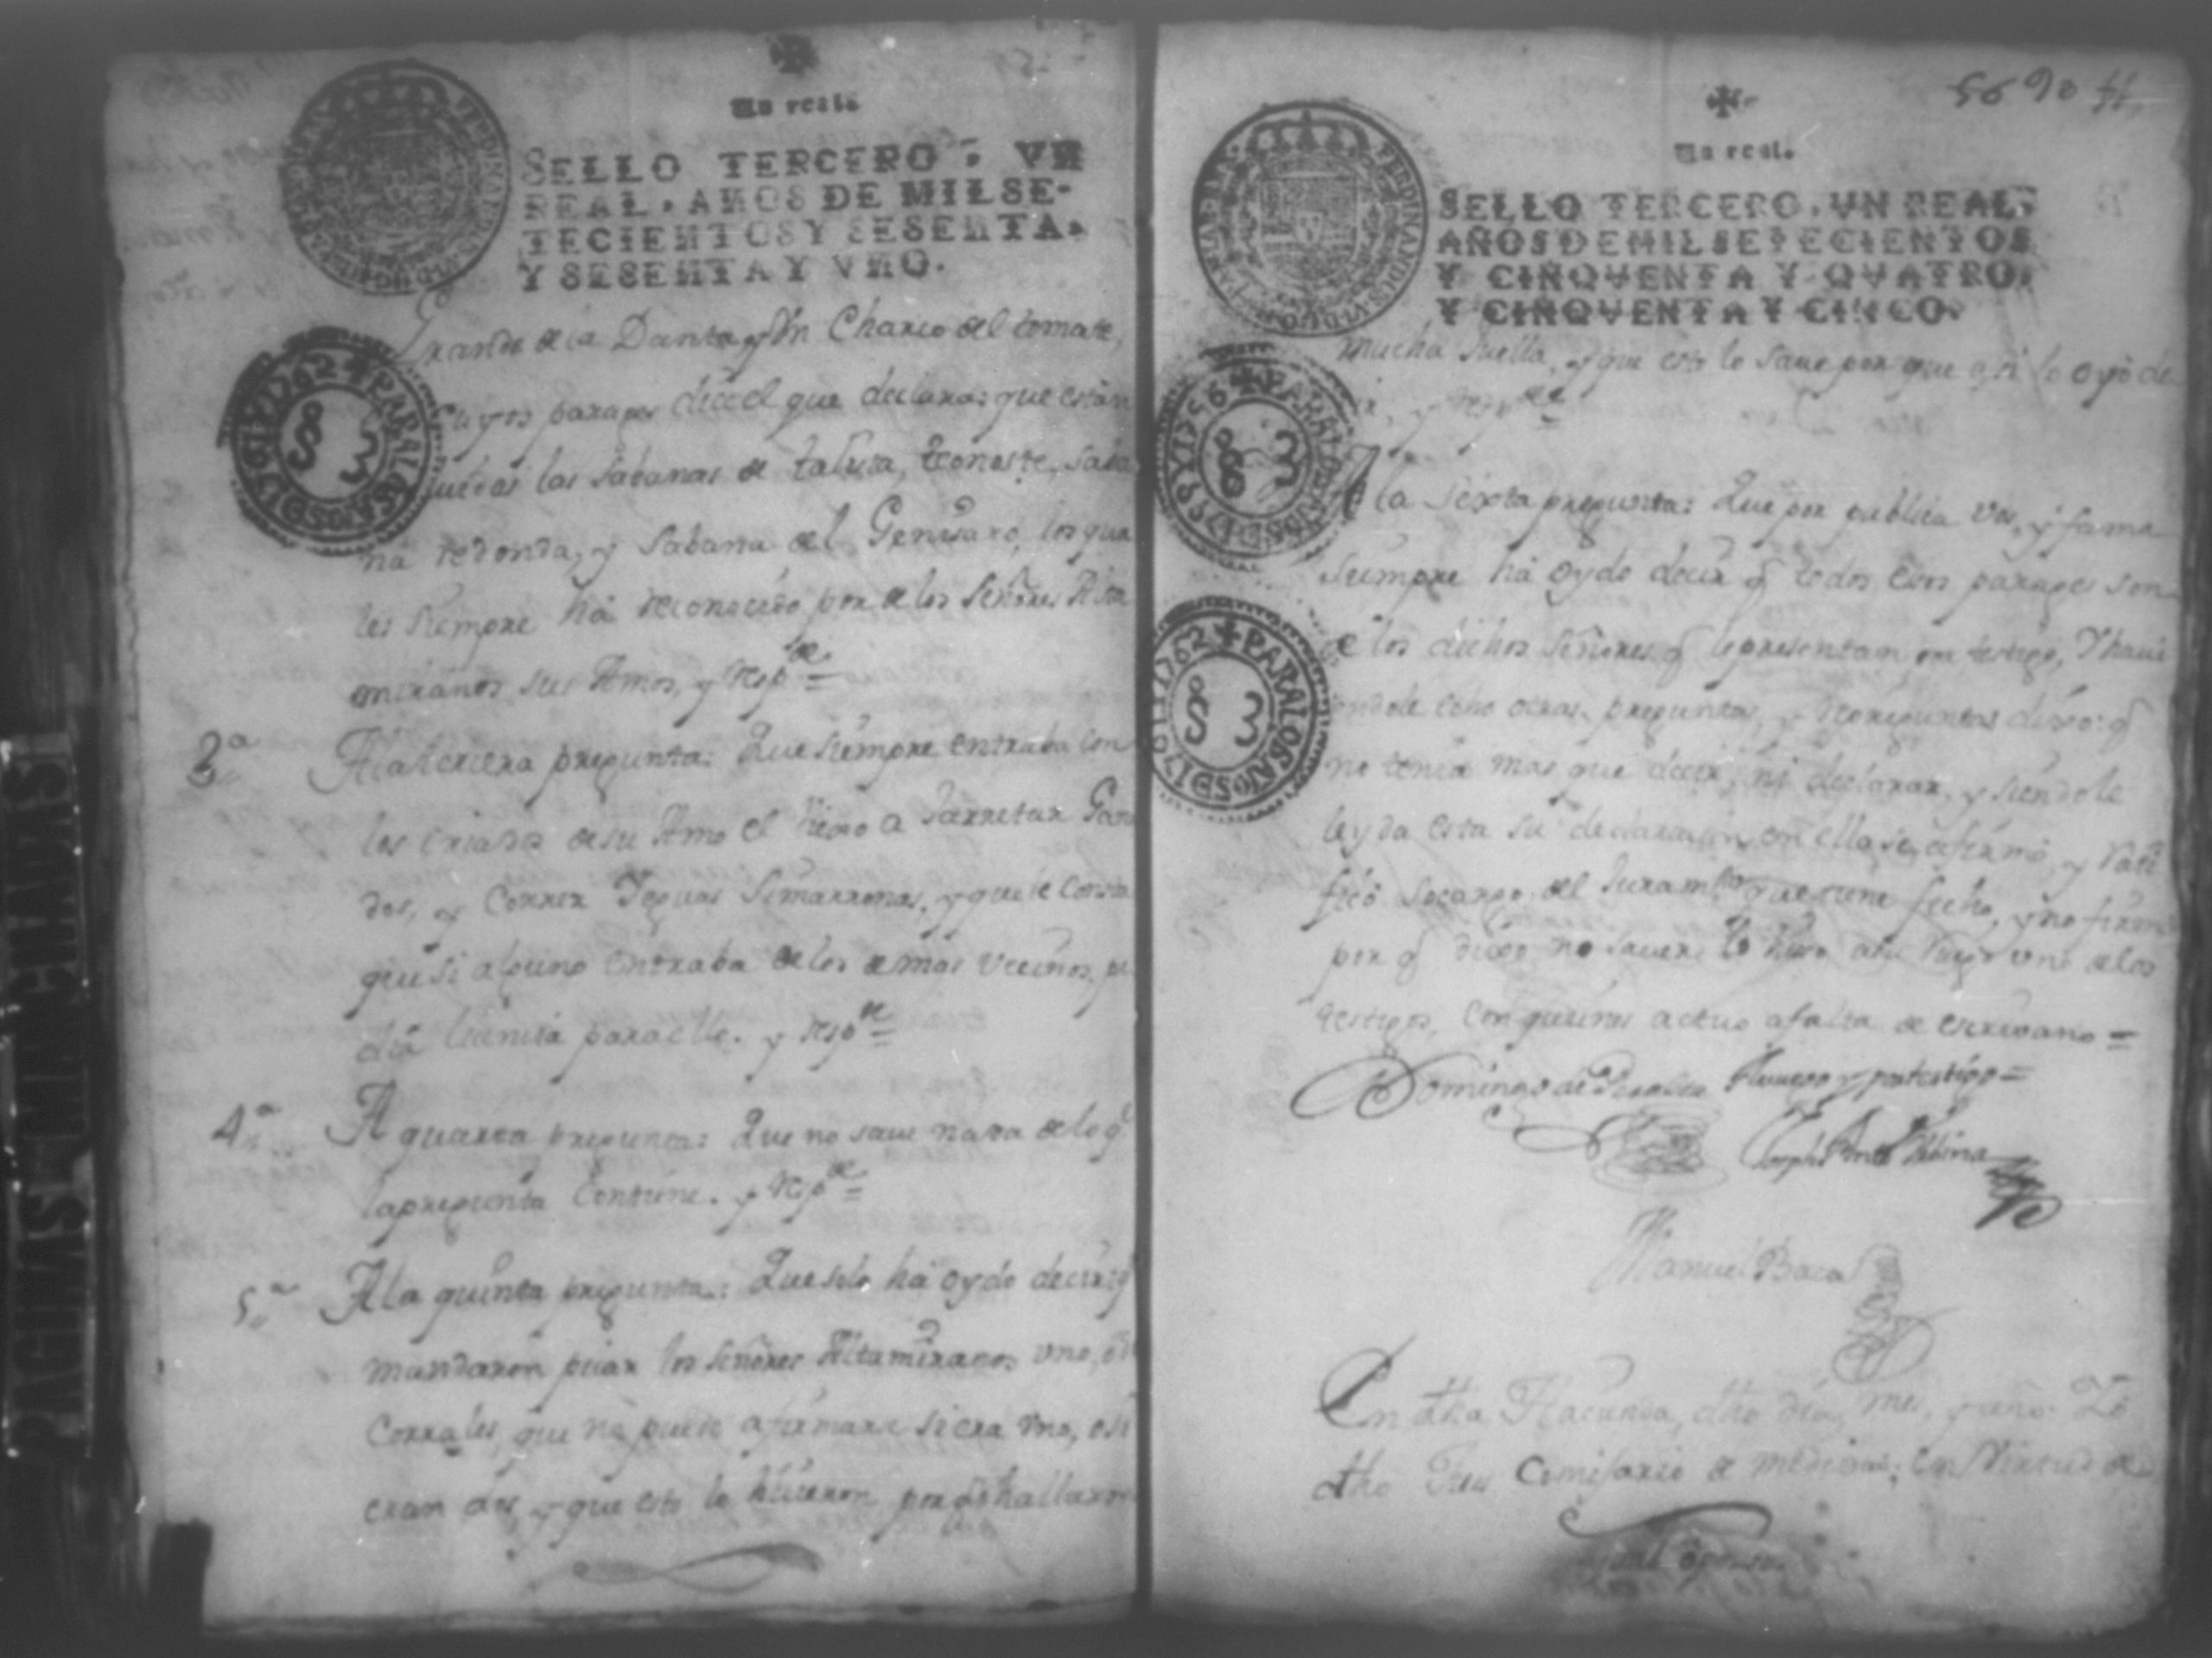 Un real.
SELLO TERCERO, VN
REAL, AÑOS DE MIL SE-
TECIENTOS Y SESENTA,
Y SESENTA Y VNO.
PARA LOS AÑOS DE 1761 Y 1762
Grande de la Danta, y Un Charco del tomate,
Cuyos parages dice el que declara: que están
las Sabanas de taluta, saba
na redonda, y Sabana del Genisaro, los qua
les siempre há reconocido por de los Señores Alta
miranos sus Amos, y resp.de =
3.a A la tercera pregunta: Que siempre entraba con
los criados de su Amo el a Jarretar Gana
dos, y Correr Yeguas Simarronas, y que le Consta
que si alguno entraba de los demas vecinos, pe
dia licencia para ello. y resp.de =
4.a A quarta pregunta: Que no save nada de lo q.
la pregunta Contiene. y resp.de =
5.a A la quinta pregunta: Que solo há oydo decir q
mandaron picar los señores Altamiranos uno, o dos
Corrales, que no puede afirmarse si era uno, o si
eran dos, y que esto lo hicieron por q hallaron
5690
Un real.
SELLO TERCERO, VN REAL,
AÑOS DE MIL SETECIENTOS
Y CINQVENTA Y QVATRO,
Y CINQVENTA Y CINCO.
PARA LOS AÑOS DE 1755 Y 1756
PARA LOS AÑOS DE 1761 Y 1762
mucha huella, y que esto lo save por que asi lo oyó de
cir, y resp.de
A la sexta pregunta: Que por publica vos, y fama
siempre há oydo decir q todos esos parages son
de los dichos Señores q lo presentan por testigo, Y havi
endole echo otras preguntas, y repreguntas dixo: q
no tenia mas que decir, ni declarar, y siendole
leyda esta su declaracion en ella se afirmó, y rati
ficó socargo del Juram.to que tiene fecho, y no firmó
por q dixo no saver: lo hizo a su ruego uno de los
testigos, con quienes actuo a falta de escrivano =
Domingo de Peralta A ruego y por testigo =
Joseph Ant.o Albina
Manuel Baca
En dha Hacienda, dho dia, mes, y año: Yo
dho Juez Comisario de medidas; en Virtud de